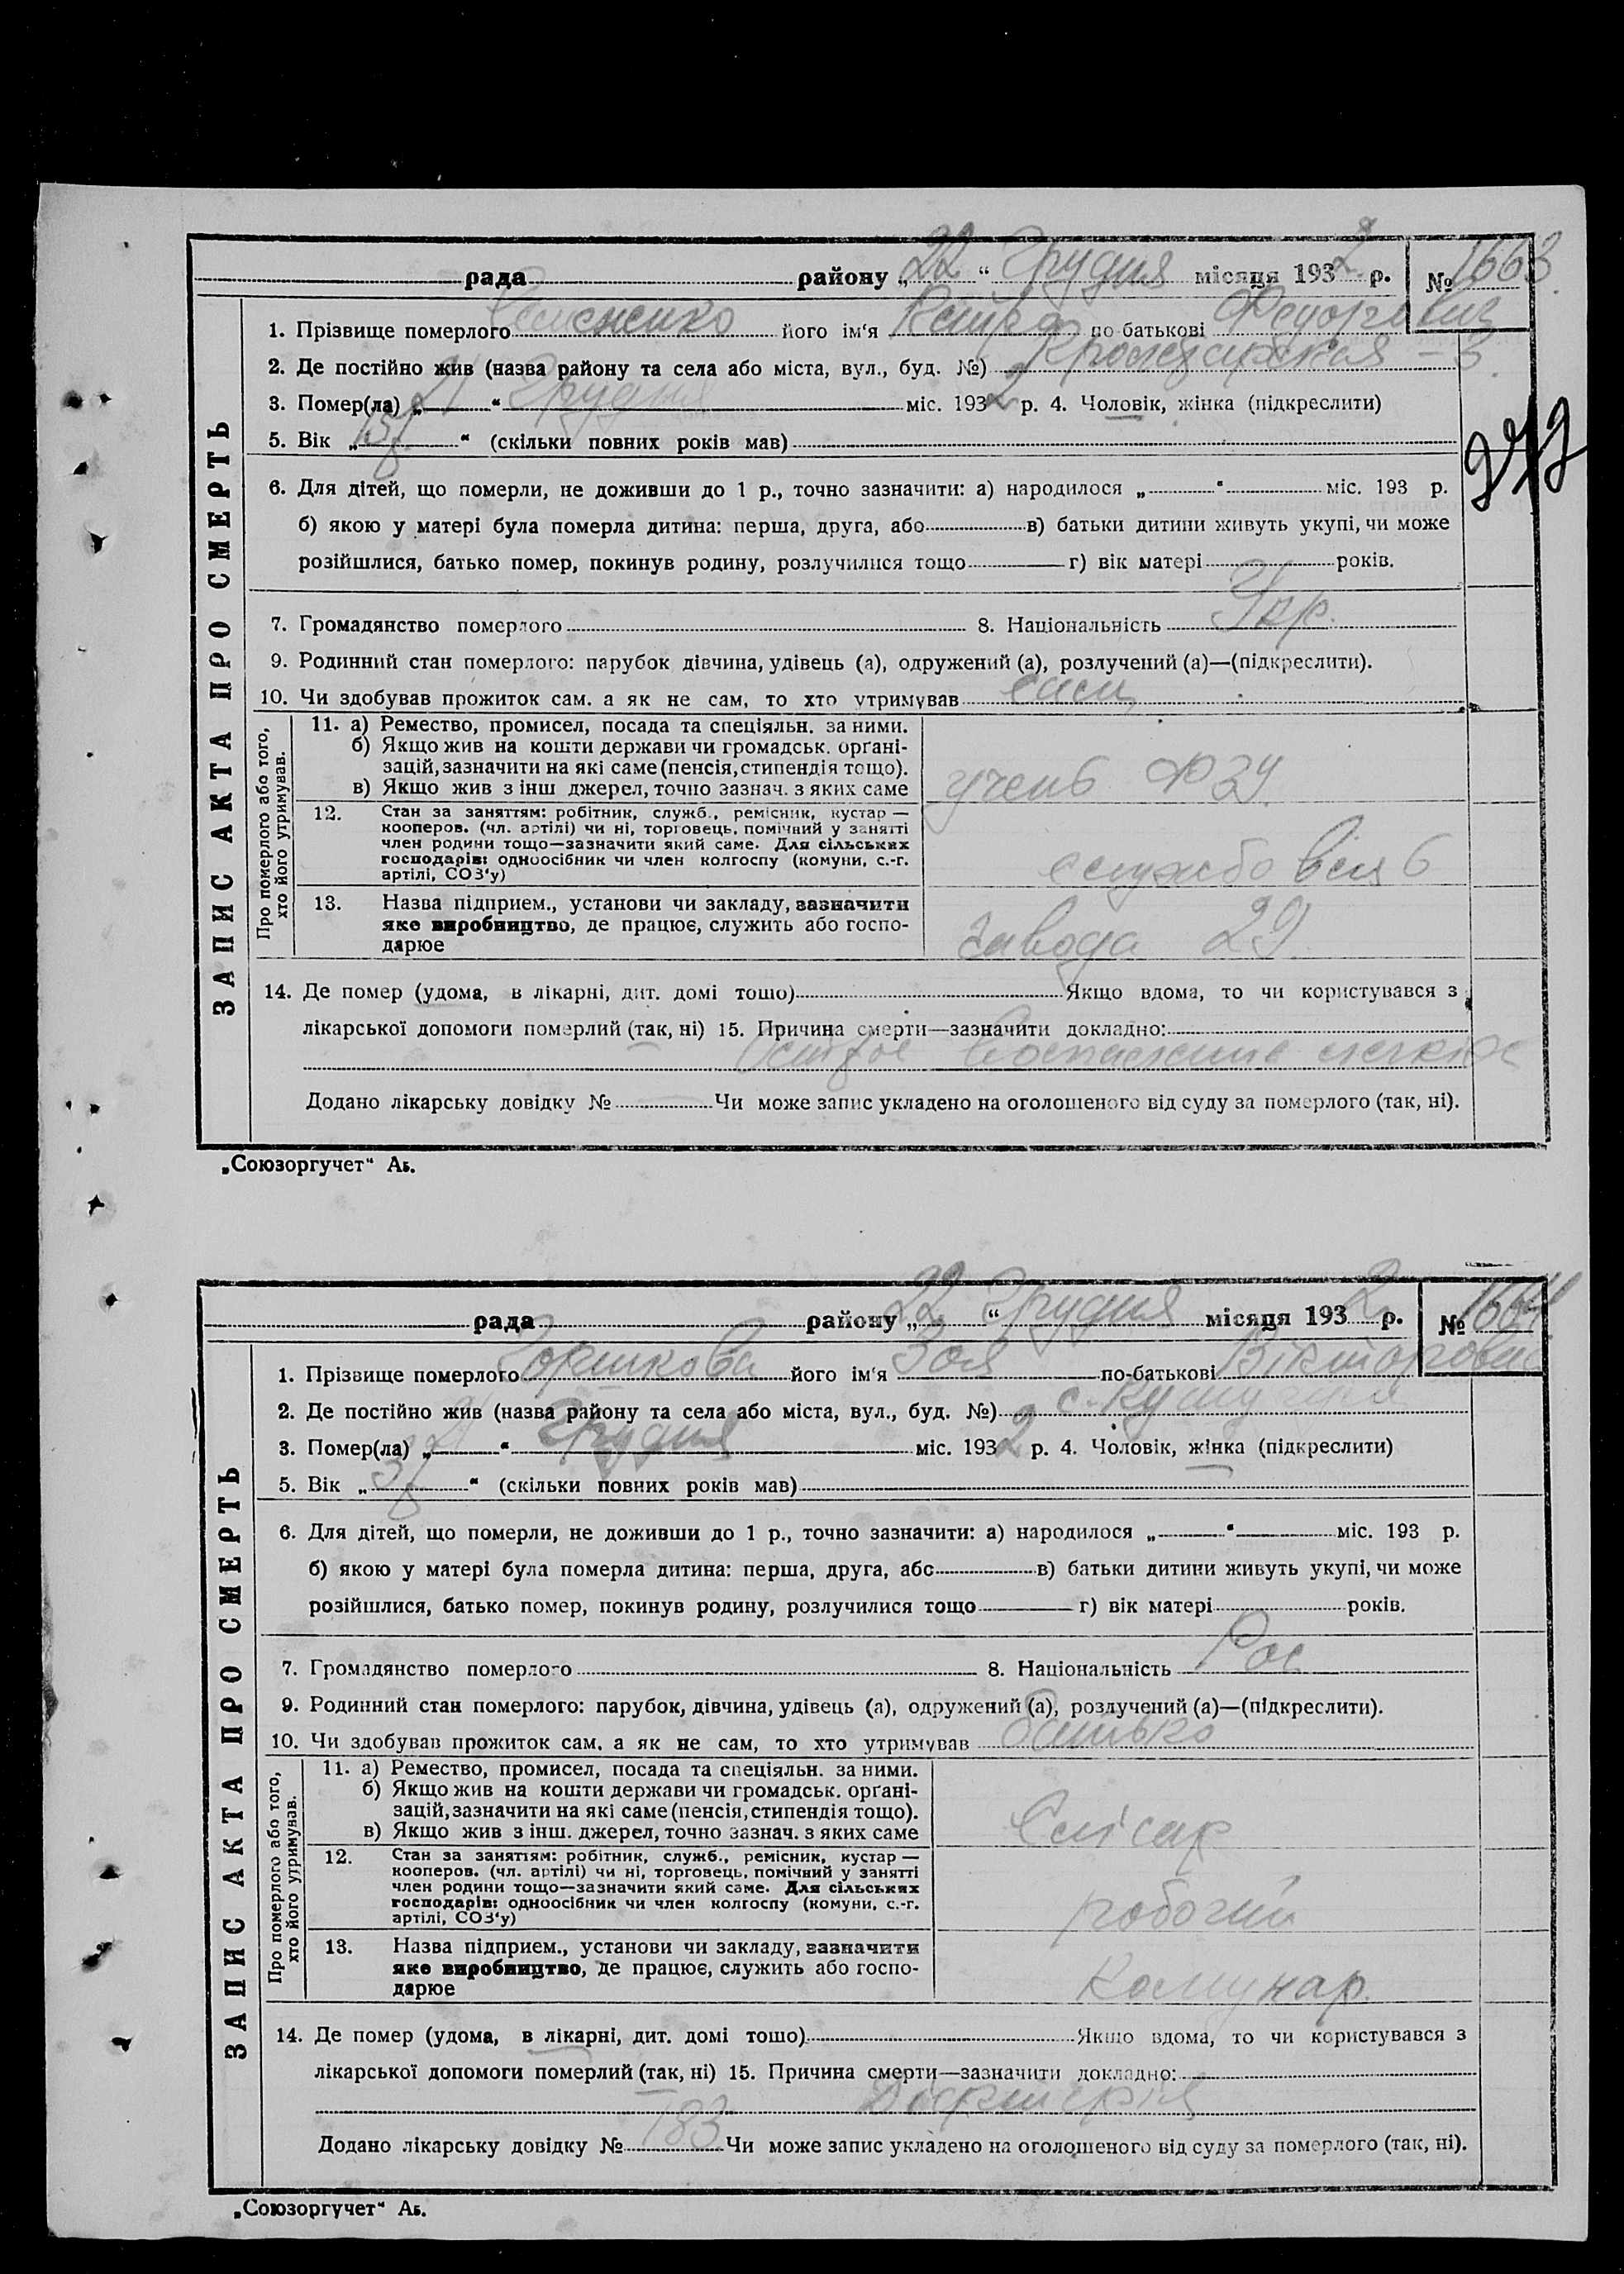 рада району „22“ Грудня місяця 1932 р. № 1663
1. Прізвище померлого його ім‘я по батькові Федорович
2. Де постійно жив (назва району та села або міста, вул., буд. №) - 3
3. Помер(ла) „21“ Грудня міс. 1932 р. 4. Чоловік, жінка (підкреслити)
5. Вік „ “ (скільки повних років мав)
272
6. Для дітей, що померли, не доживши до 1 р., точно зазначити: а) народилося „ “ міс. 193 р.
б) якою у матері була померла дитина: перша, друга, або в) батьки дитини живуть укупі, чи може
розійшлися, батько помер, покинув родину, розлучилися тощо г) вік матері років.
7. Громадянство померлого 8. Національність Укр.
9. Родинний стан померлого: парубок дівчина, удівець (а), одружений (а), розлучений (а)—(підкреслити).
10. Чи здобував прожиток сам. а як не сам, то хто утримував
ЗАПИС АКТА ПРО СМЕРТЬ
Про померлого або того,
хто його утримував.
11. а) Ремество, промисел, посада та спеціяльн. за ними.
б) Якщо жив на кошти держави чи громадськ. орґані-
зацій, зазначити на які саме (пенсія, стипендія тощо).
в) Якщо жив з інш джерел, точно зазнач. з яких саме
учень ФЗУ.
12. Стан за заняттям: робітник, служб., ремісник, кустар —
кооперов. (чл. артілі) чи ні, торговець, помічний у занятті
член родини тощо—зазначити який саме. Для сільських
господарів: одноосібник чи член колгоспу (комуни, с.-г.
артілі, СОЗ‘у)
13. Назва підприєм., установи чи закладу, зазначити
яке виробництво, де працює, служить або госпо-
дарює
завода 29.
14. Де помер (удома, в лікарні, дит. домі тощо) Якщо вдома, то чи користувався з
лікарської допомоги померлий (так, ні) 15. Причина смерти—зазначити докладно:
Острое Воспаление легких
Додано лікарську довідку № — Чи може запис укладено на оголошеного від суду за померлого (так, ні).
„Союзоргучет“ Аь.
рада району „22“ Грудня місяця 1932 р. № 1664
1. Прізвище померлого Горшкова його ім‘я Зоя по-батькові Вікторовна
2. Де постійно жив (назва району та села або міста, вул., буд. №)
3. Помер(ла) „21“ Грудня міс. 1932 р. 4. Чоловік, жінка (підкреслити)
5. Вік „3“ (скільки повних років мав)
6. Для дітей, що померли, не доживши до 1 р., точно зазначити: а) народилося „ “ міс. 193 р.
б) якою у матері була померла дитина: перша, друга, абс в) батьки дитини живуть укупі, чи може
розійшлися, батько помер, покинув родину, розлучилися тощо г) вік матері років.
7. Громадянство померлого 8. Національність Рос
9. Родинний стан померлого: парубок, дівчина, удівець (а), одружений (а), розлучений (а)—(підкреслити).
10. Чи здобував прожиток сам. а як не сам, то хто утримував батько
ЗАПИС АКТА ПРО СМЕРТЬ
Про померлого або того,
хто його утримував.
11. а) Ремество, промисел, посада та спеціяльн. за ними.
б) Якщо жив на кошти держави чи громадськ. орґані-
зацій, зазначити на які саме (пенсія, стипендія тощо).
в) Якщо жив з інш. джерел, точно зазнач. з яких саме
Слісар
12. Стан за заняттям: робітник, служб., ремісник, кустар —
кооперов. (чл. артілі) чи ні, торговець, помічний у занятті
член родини тощо—зазначити який саме. Для сільських
господарів: одноосібник чи член колгоспу (комуни, с.-г.
артілі, СОЗ‘у)
робочий
13. Назва підприєм., установи чи закладу, зазначити
яке виробництво, де працює, служить або госпо-
дарює
Комунар.
14. Де помер (удома, в лікарні, дит. домі тощо) Якшо вдома, то чи користувався з
лікарської допомоги померлий (так, ні) 15. Причина смерти—зазначити докладно:
Діфтерія
Додано лікарську довідку № 183 Чи може запис укладено на оголошеного від суду за померлого (так, ні).
„Союзоргучет“ Аь.